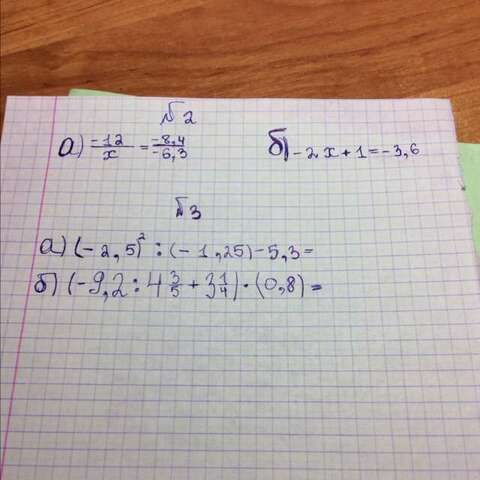 №2
а) -12/x = -8,4/-6,3 б) -2x+1=-3,6
№3
а) (-2,5)² : (-1,25)-5,3=
б) (-9,2 : 4 3/5 + 3 1/4) · (0,8) =